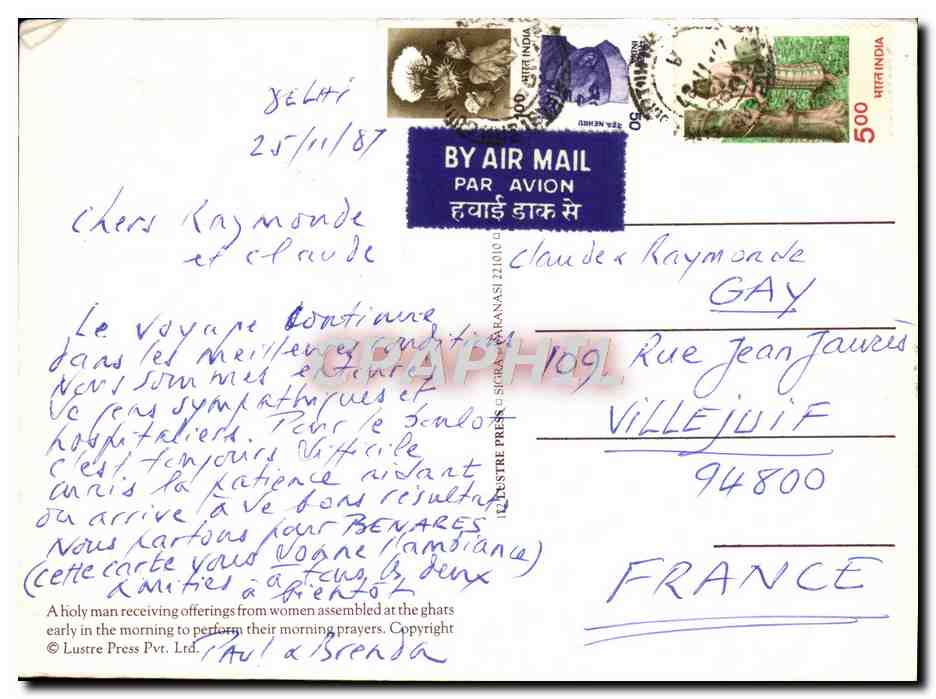 DELHI
25/11/87
Chers Raymonde
et Claude
Le voyage continue
dans les meilleures conditions
Nous sommes entourés
de gens sympathiques et
hospitaliers. Pour le boulot
c'est toujours difficile
mais la patience aidant
on arrive à de bons résultats
Nous partons pour BENARES
(cette carte vous donne l'ambiance)
Amitiés à tous les deux
à bientôt
Paul & Brenda
A holy man receiving offerings from women assembled at the ghats
early in the morning to perform their morning prayers. Copyright
© Lustre Press Pvt. Ltd.
LUSTRE PRESS □ SIGRA □ VARANASI 221010 □
भारत INDIA
00
NEHRU
INDIA
50
भारत INDIA
500
BY AIR MAIL
PAR AVION
हवाई डाक से
Claude & Raymonde
GAY
109. Rue Jean Jaurès
VILLEJUIF
94800
FRANCE
CPAPHIL